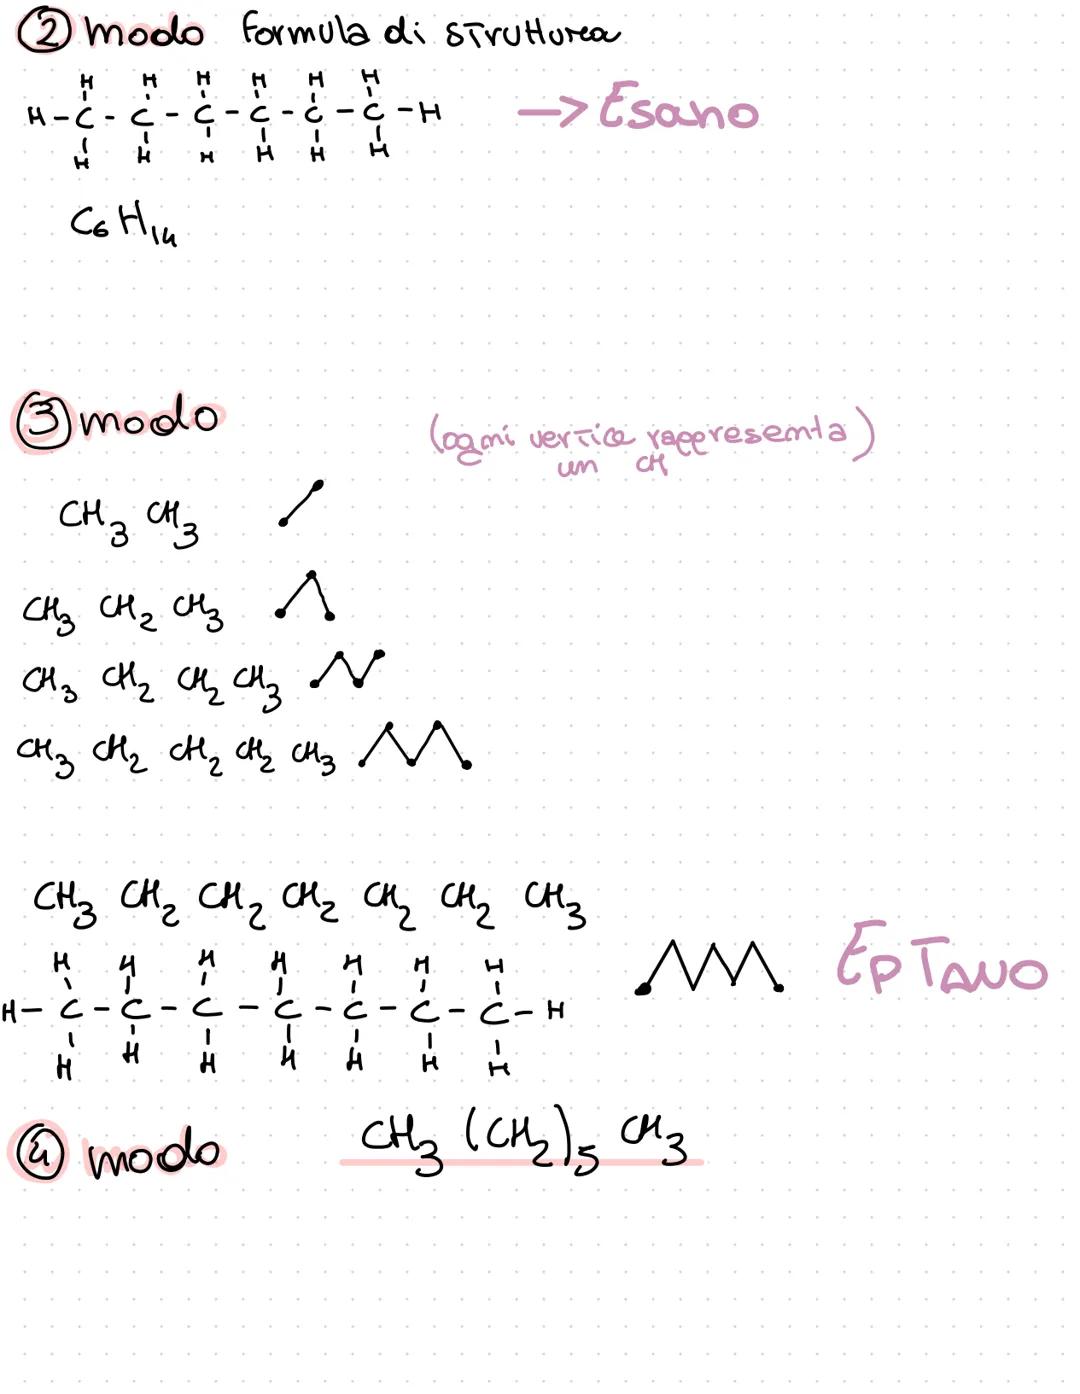 ② modo formula di struttura
H H H H H H
H-C-C-C-C-C-C-H → Esano
H H H H H H
C₆H₁₄
③ modo
(ogni vertice rappresenta
un CH
CH₃ CH₃
CH₃ CH₂ CH₃
CH₃ CH₂ CH₂ CH₃
CH₃ CH₂ CH₂ CH₂ CH₃
CH₃ CH₂ CH₂ CH₂ CH₂ CH₂ CH₃
H H H H H H H
H-C-C-C-C-C-C-C-H EpTANO
H H H H H H H
④ modo CH₃ (CH₂)₅ CH₃